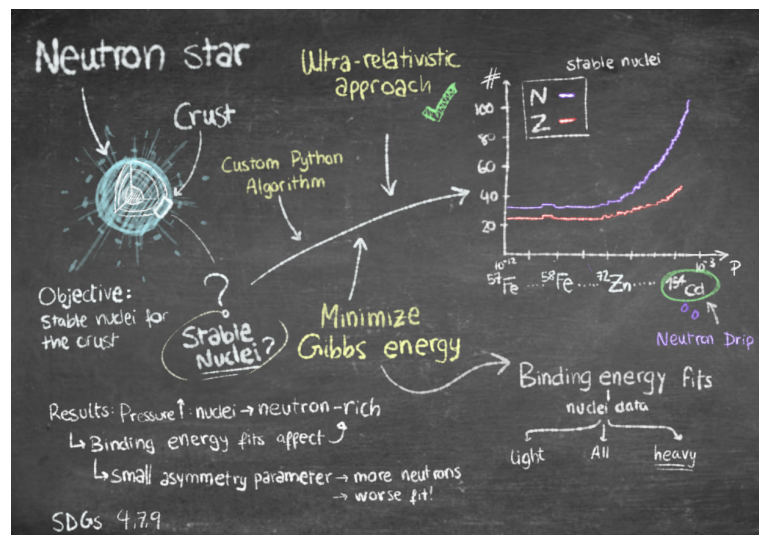 Neutron star
Crust
Custom Python
Algorithm
Ultra-relativistic
approach
Objective:
stable nuclei for
the crust
?
Stable
Nuclei?
Minimize
Gibbs energy
stable nuclei
#
N
Z
100
80
60
40
20
10⁻¹²
10⁻³
P
⁵⁷Fe ..... ⁵⁸Fe ..... ⁷²Zn ..... ¹⁵⁴Cd
Neutron Drip
Binding energy fits
nuclei data
light
All
heavy
Results: Pressure ↑: nuclei → neutron-rich
↳ Binding energy fits affect
↳ Small asymmetry parameter → more neutrons
→ worse fit!
SDGs 4,7,9